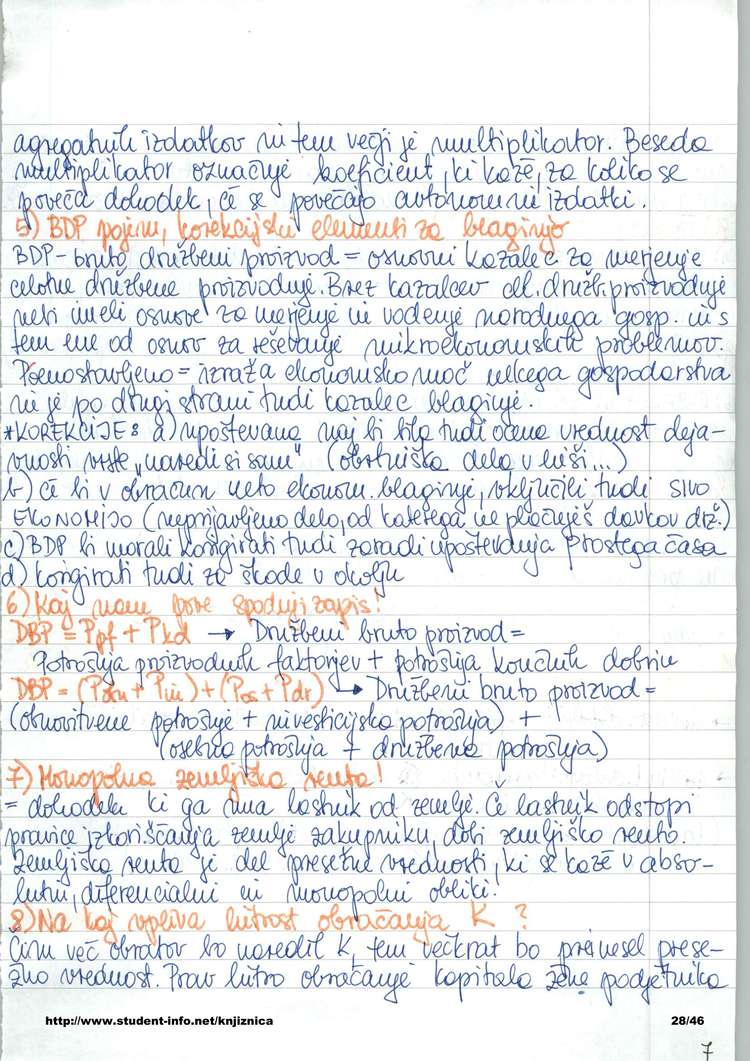 agregatnih izdatkov in tem večji je multiplikator. Beseda
multiplikator označuje koeficient, ki kaže, za koliko se
poveča dohodek, če se povečajo avtonomni izdatki.
5) BDP pojem, korekcijski elementi za blaginjo
BDP - bruto družbeni proizvod = osnovni kazalec za merjenje
celotne družbene proizvodnje. Brez kazalcev cel. družb. proizvodnje
nebi imeli osnove za merjenje in vodenje narodnega gosp. in s
tem ene od osnov za reševanje mikroekonomskih problemov.
Poenostavljeno = izraža ekonomsko moč nekega gospodarstva
in je po drugi strani tudi kazalec blaginje.
*KOREKCIJE: a) upoštevana naj bi bila tudi ocena vrednost deja-
vnosti vrste „naredi si sam" (obrtniška dela v hiši...)
b) če bi v obračun neto ekonom. blaginje, vključili tudi SIVO
EKONOMIJO (neprijavljeno delo, od katerega ne plačuješ davkov drž.)
c) BDP bi morali korigirati tudi zaradi upoštevanja prostega časa
d) korigirati tudi za škode v okolju
6) Kaj nam pove spodnji zapis!
DBP = Ppf + Pkd → Družbeni bruto proizvod =
Potrošnja proizvodnih faktorjev + potrošnja končnih dobrin
DBP = (Pobn + Pin) + (Pos + Pdr) → Družbeni bruto proizvod =
(obnovitvene potrošnje + investicijska potrošnja) +
(osebna potrošnja + družbena potrošnja)
7) Monopolna zemljiška renta!
= dohodek ki ga ima lastnik od zemlje. Če lastnik odstopi
pravice izkoriščanja zemlje zakupniku, dobi zemljiško rento.
Zemljiška renta je del presežne vrednosti, ki se kaže v abso-
lutni, diferencialni in monopolni obliki!
8) Na kaj vpliva hitrost obračanja K ?
Čim več obratov bo naredil K, tem večkrat bo prinesel prese-
žno vrednost. Prav hitro obračanje kapitala žene podjetnika
http://www.student-info.net/knjiznica
28/46
7